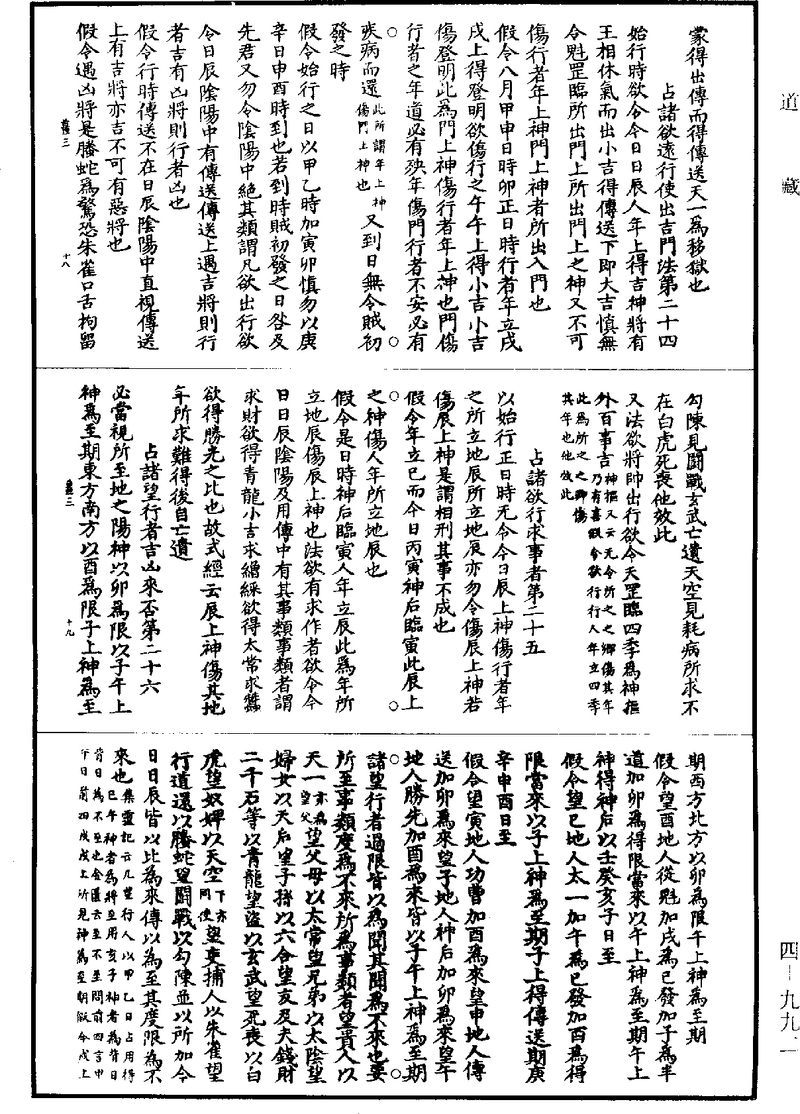 道藏
蒙得出傳而得傳送天一為移獄也
占諸欲遠行使出吉門法第二十四
始行時欲令今日日辰人年上得吉神將有
王相休氣而出小吉得傳送下即大吉慎無
令魁罡臨所出門上所出門上之神又不可
傷行者年上神門上神者所出入門也
假令八月甲申日時卯正日時行者年立戌
戌上得登明欲傷行之午午上得小吉小吉
傷登明此為門上神傷行者年上神也門傷
行者之年道必有殃年傷門行者不安必有
疾病而還此所謂年上神傷門上神也又到日無令賊初
發之時
假令始行之日以甲乙時加寅卯慎勿以庚
辛日申酉時到也若到時賊初發之日咎及
先君又勿令陰陽中絕其類謂凡欲出行欲
令日辰陰陽中有傳送傳送上遇吉將則行
者吉有凶將則行者凶也
假令行時傳送不在日辰陰陽中直視傳送
上有吉將亦吉不可有惡將也
假令遇凶將是螣蛇為驚恐朱雀口舌拘留
十八
勾陳見鬪戰玄武亡遺天空見耗病所求不
在白虎死喪他效此
又法欲將帥出行欲令天罡臨四季為神摳
外百事吉神摳又云无令所之之鄉傷其年乃有喜假令欲行行人年立四季
此為所之之鄉傷其年也他效此
占諸欲行求事者第二十五
以始行正日時无令今日辰上神傷行者年
之所立地辰所立地辰亦勿令傷辰上神若
傷辰上神是謂相刑其事不成也
假令年立巳而今日丙寅神后臨寅此辰上
之神傷人年所立地辰也
假令是日時神后臨寅人年立辰此為年所
立地辰傷辰上神也法欲有求作者欲令今
日日辰陰陽及用傳中有其事類事類者謂
求財欲得青龍小吉求繒綵欲得太常求蠶
欲得勝先之比也故式經云辰上神傷其地
年所求難得後自亡遺
占諸望行者吉凶來否第二十六
必當視所至地之陽神以卯為限以子午上
神為至期東方南方以酉為限子上神為至
十九
期西方北方以卯為限午上神為至期
假令望酉地人從魁加戌為已發加子為半
道加卯為得限當來以午上神為至期午上
神得神后以壬癸亥子日至
假令望巳地人太一加午為已發加酉為得
限當來以子上神為至期子上得傳送期庚
辛申酉日至
假令望寅地人功曹加酉為來望申地人傳
送加卯為來望子地人神后加卯為來望午
地人勝先加酉為來皆以子午上神為至期
諸望行者過限皆以為聞其聞為不來也要
所至事類度為不來所為事類者望貴人以
天一亦為望父望父母以太常望兄弟以太陰望
婦女以天后望子孫以六合望友及夫錢財
二千石等以青龍望盜以玄武望死喪以白
虎望奴婢以天空下亦同使望吏捕人以朱雀望
行道還以螣蛇望鬪戰以勾陳並以所加今
日日辰皆以比為來傳以為至其度限為不
來也集靈記云凡望行人以甲乙日占用得巳午神者為將至用亥子神者為背日
背日為不至也金匱云至不至問前四言中午日前四戌戌上所見神為至期假令戌上
四－九九二